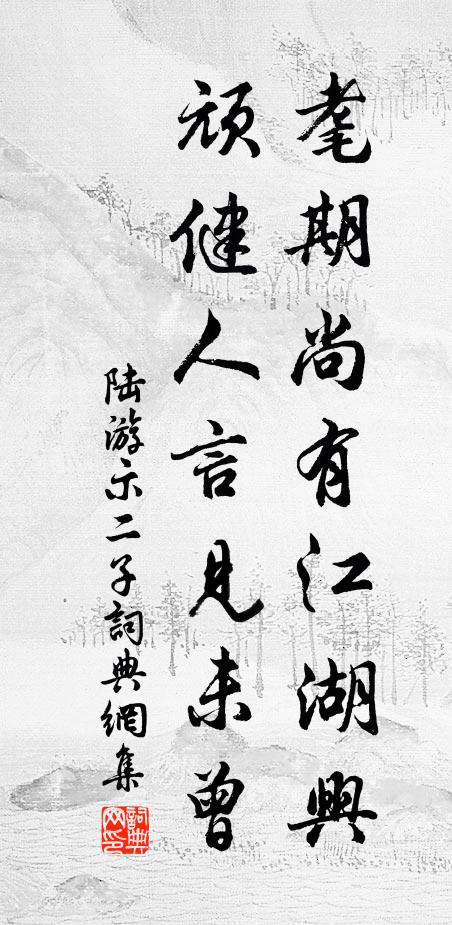 耄期尚有江湖興
頑健人言見未曾
陆游示二子詞典網集
詞典網印